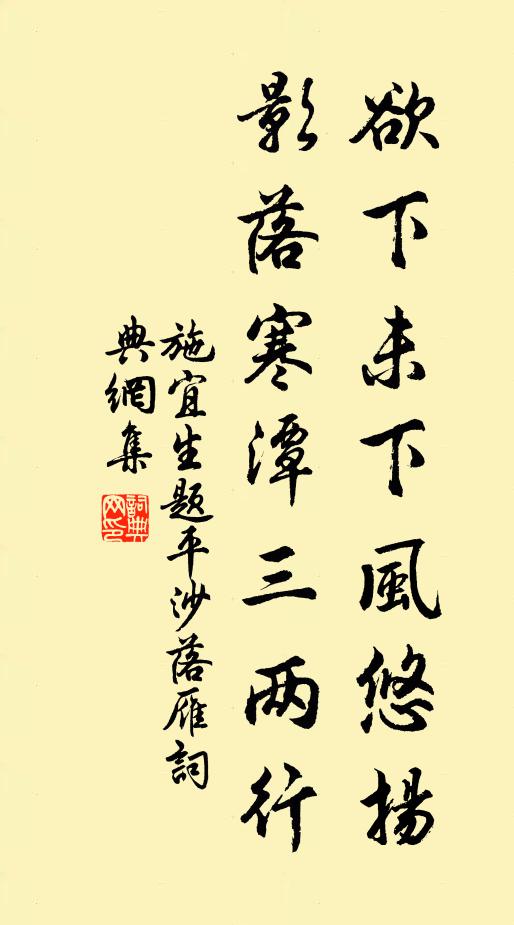 欲下未下風悠揚
影落寒潭三两行
施宜生題平沙落雁詞
典網集
詞典網印